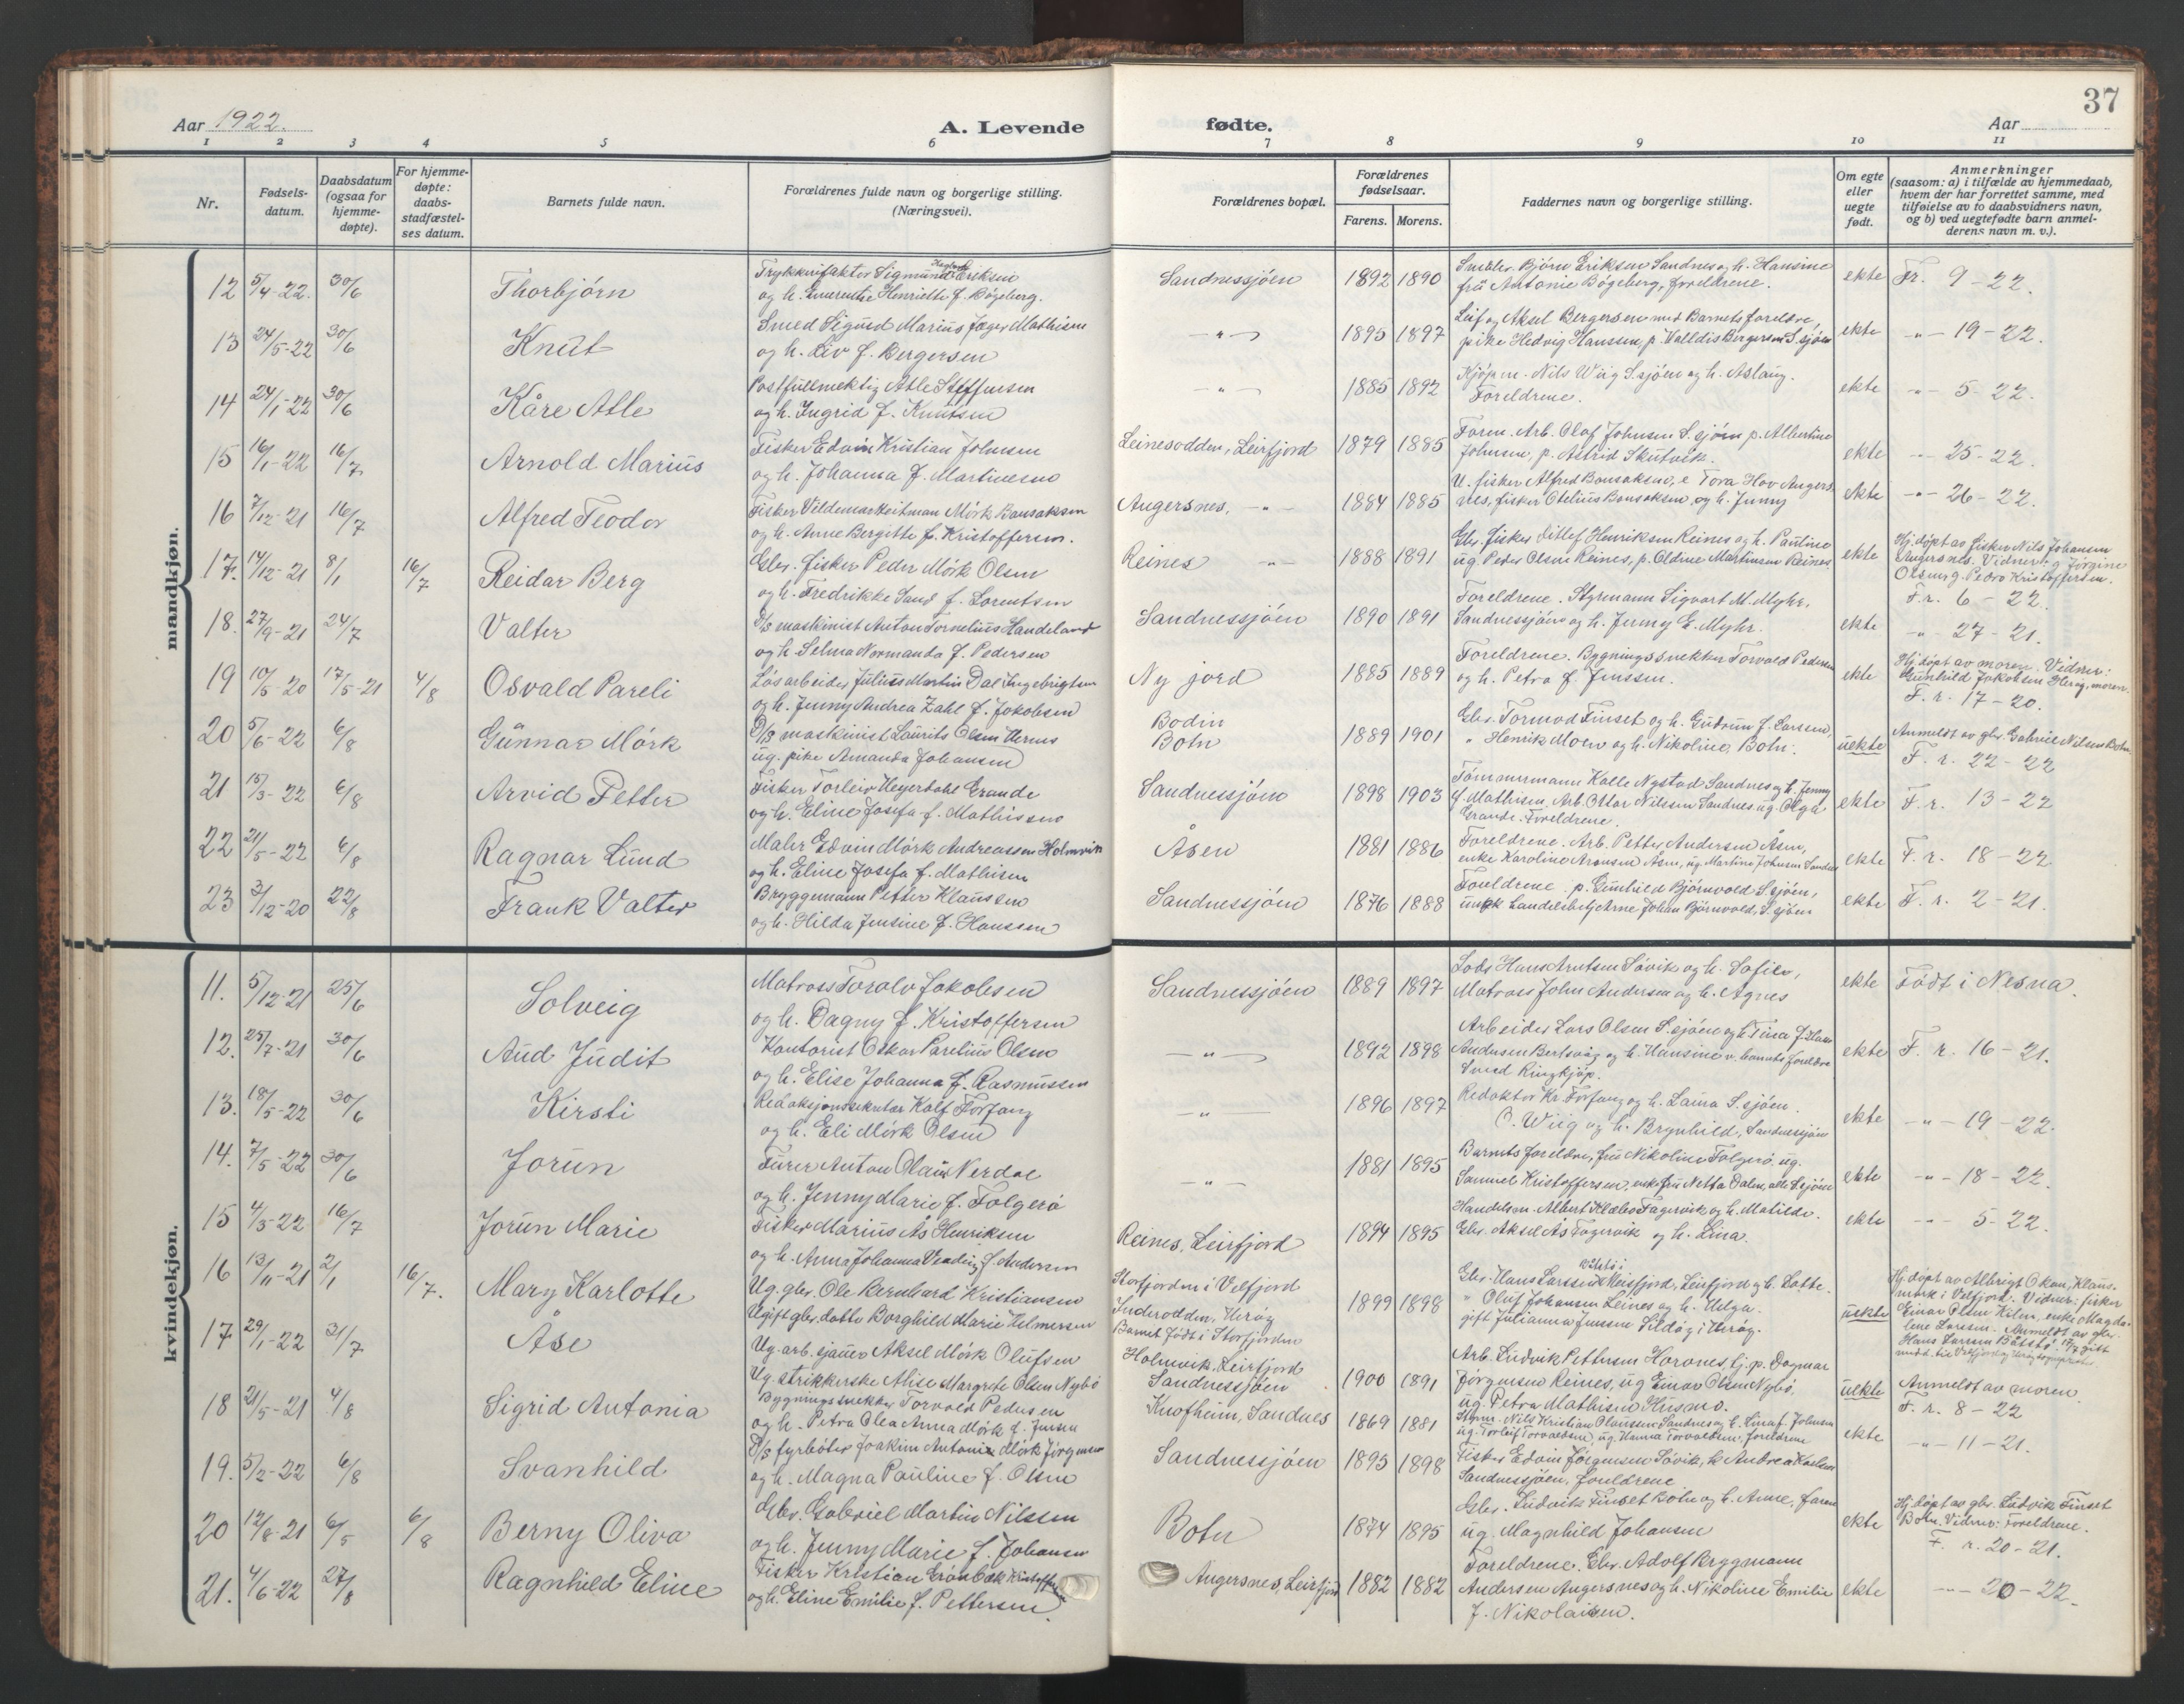 37
Aar 1922.
A. Levende fødte.
Aar
1 2 3 4 5 6 7 8 9 10 11
Nr.
Fødsels-
datum.
Daabsdatum
(ogsaa for
hjemme-
døpte).
For hjemme-
døpte:
daabs-
stadfæstel-
ses datum.
Barnets fulde navn.
Forældrenes fulde navn og borgerlige stilling.
(Næringsvei).
Forældrenes bopæl.
Forældrenes
fødselsaar.
Farens. Morens.
Faddernes navn og borgerlige stilling.
Om egte
eller
uegte
født.
Anmerkninger
(saasom: a) i tilfælde av hjemmedaab,
hvem der har forrettet samme, med
tilføielse av to daabsvidners navn,
og b) ved uegtefødte barn anmel-
derens navn m. v.).
mandkjøn.
12 5/4-22. 30/6 Thorbjörn
Trykkerifaktor Sigmund Eriksen
og h. Henriette f. Bögeberg.
Sandnessjöen 1892 1890
Bjørn Eriksen Sandnes og h. Hansine
frü Antonie Bögeberg, foreldrene.
ekte Fr. 9-22.
13 24/5-22 30/6 Knüt
Smed Sigürd Mariüs Jæger Mathisen
og h. Liv f. Bergersen
-"- 1895 1897
Leif og Aksel Bergersen med Barnets forældre,
pike Hedvig Hanssen, p. Valldis Bergersen S.sjöen
ekte -"- 19-22.
14 24/1-22 30/6 Kåre Atle
Postfüllmektig Atle Steffensen
og h. Ingrid f. Knütsen
-"- 1885 1892
Kjöpm. Nils Wiig S.sjöen og h. Aslaüg.
Foreldrene.
ekte -"- 5-22.
15 16/1-22 16/7 Arnold Mariüs
Fisker Edvin Kristian Johnsen
og h. Johanna f. Martinesen
Leinesodden, Leirfjord 1879 1885
Form. Arb. Olaf Johnsen S.sjöen p. Albertine
Johnsen, p. Astrid Skutvik.
ekte -"- 25-22.
16 7/12-21 16/7 Alfred Teodor
Fisker Mörk Bansaksen
og h. Anne Bergitte f. Kristoffersen.
Augersnes, -"- 1884 1885
U. fisker Alfred Bonsaksen, e Tora Hov Angers-
nes, fisker Oteliüs Bonsaksen og h. Jenny
ekte -"- 26-22.
17. 14/12-21 8/1 16/7 Reidar Berg
Gbr. fisker Peder Mörk Olsen
og h. Fredrikke Sand f. Lorentsen
Reines -"- 1888 1891
Gbr. fisker Ditlef Henriksen Reines og h. Paüline
üg. Peder Olsen Reines, p. Oldine Martinsen Reines
ekte Hj. döpt av fisker Nils Johansen
Angersnes. Vidner: Jörgine
Olsen g. Pedro Kristoffersen.
F.r. 6-22.
18. 27/9-21 24/7 Valter
D/S maskinist Anton Torneliüs Handeland
og h. Selma Normanda f. Pedersen
Sandnessjöen 1890 1891
Foreldrene. Styrmann Sigvart M. Myhr,
Sandnessjöen og h. Jenny E. Myhr.
ekte -"- 27-21.
19 10/5-20 17/5-21 4/8 Osvald Pareli
Lösarbeider Jüliüs Martin Dal Ingebrigtsen
og h. Jenny Andrea Zahl f. Jakobsen
Ny jord 1885 1889
Foreldrene. Bygningssnekker Torvald Pedersen
og h. Petra f. Jenssen.
ekte Hj. döpt av moren. Vidner:
Günhild Jakobsen Heröy, moren.
F.r. 17-20.
20 5/6-22 6/8 Günnar Mörk
D/S maskinist Laürits Olsen
üg. pike Amanda Johansen
Bodin
Botn 1889 1901
Gbr. Tormod Finset og h. Güdrün f. Larssen,
" Henrik Moen og h. Nikoline, Botn.
üekte Anmeldt av gbr. Gabriel Nilsen Botn
F.r. 22-22
21 15/3-22 6/8 Arvid Petter
Fisker Torleiv Heyerdahl Grande
og h. Eline Josefa f. Mathissen
Sandnessjöen 1898 1903
Tömmermann Kalle Nystad Sandnes og h. Jenny
f. Mathisen, Arb. Ottar Nilssen Sandnes üg. Olga
Grande. Foreldrene.
ekte F.r. 13-22
22 21/5-22 6/8 Ragnar Lünd
Maler Edvin Mörk Andreassen Holmvik
og h. Eline Josefa f. Mathisen
Åsen 1881 1886
Foreldrene. Arb. Petter Andersen Åsen,
enke Karoline Aronsen Åsen, üg. Martine Johnsen Sandnes
ekte F.r. 18-22
23 3/12-20 22/8 Frank Valter
Bryggemann Petter Klaüssen
og h. Hilda Jensine f. Hanssen
Sandnessjöen 1876 1888
Foreldrene. p. Günhild Björnvold S.sjöen,
üngk. handelsbetj. Arne Johan Björnvold, S.sjöen
ekte F.r. 2-21.
kvindekjøn.
11. 5/12-21 25/6 Solveig
Matross Toralv Jakobsen
og h. Dagny f. Kristoffersen
Sandnessjöen 1889 1897
Lods Hans Arntsen Sövik og h. Sofie,
Matross John Andersen og h. Agnes
ekte Födt i Nesna.
12. 25/7-21 30/6 Aüd Jüdit
Kontorist Oskar Pareliüs Olsen
og h. Elise Johanna f. Rasmüssen
-"- 1892 1898
Arbeider Lars Olsen S.sjöen og h. Tina f. Hans
Andersen og h. Hansine barnets foreldre
Smed Ringkjöp.
ekte F.r. 16-21.
13. 18/5-22 30/6 Kirsti
Redaksjonssekretær Kolf Forfang
og h. Eli Mörk Olsen
-"- 1896 1897
Redaktör Kr. Forfang og h. Laüra S.sjöen.
O. Wiig og h. Brynhild, Sandnessjöen
ekte -"- 19-22.
14. 7/5-22 30/6 Jorün
Fürer Anton Olaüs Nerdal
og h. Jenny Marie f. Folgerö
-"- 1881 1895
Barnets foreldre, frü Nikoline Folgerö, üg.
Samüel Kristoffersen, enkefrü Netta Dalen, alle S.sjöen
ekte -"- 18-22.
15 4/3-22 16/7 Jorün Marie
Fisker Mariüs Ås Henriksen
og h. Anna Johanna f. Andersen
Reines, Leirfjord 1894 1895
Handelsm. Albert Klæbo Fagervik og h. Matilde.
Gbr. Aksel Ås Fagervik og h. Lina.
ekte -"- 5-22.
16 13/11-21 2/1 16/7. Mary Karlotte
Ug. gbr. Ole Bernhard Kristiansen
Ugift gbr. datter Borghild Marie Helmersen
Storfjorden i Velfjord
Inderodden, Heröy
Barnet födt i Storfjorden 1899 1898
Gbr. Hans Larssen Meisfjord, Leirfjord og h. Lotte.
" Olüf Johansen Leines og h. Helga.
gift Jülianna Jenssen Sildöy i Heröy.
üekte Hj. döpt av
i Velfjord. Vidner: fisker
Einar Olsen enke Magda-
lene Larssen. Anmeldt av gbr.
Hans Larssen
17 29/1-22 31/7 Åse
Ug. arb. sjaüer Aksel Mörk Olüfsen
Ug. strikkerske Alise Margrete Olsen Nybö
Holmvik, Leirfjord
Sandnessjöen 1900 1891
Arb. Lüdvik Pettersen Horsnes, tj. p. Dagmar
Jörgensen Reines, üg Einar Olsen Nybö,
üg. Petra Mathisen Hüsmo.
üekte Anmeldt av moren.
F.r. 8-22
18 21/5-21 4/8 Sigrid Antonia
Bygningssnekker Torvald Pedersen
og h. Petra Olea Anna Mörk f. Jensen
Knofheim, Sandnes 1869 1881
Styrm. Nils Kristian Olaüssen Sandnes og h. Lina f. Johnsen
üg. Torleif Torvaldsen, üg. Hanna Torvaldsen, foreldrene
ekte -"- 11-21.
19. 5/2-22 6/8 Svanhild
D/S fyrböter Joakim Anton Mörk Jörgensen
og h. Magna Paüline f. Olsen
Sandnessjöen 1895 1898
Fisker Edvin Jörgensen Sövik, h. Andrea Karlsen
Sandnessjöen, foreldrene
20 12/8-21 6/5 6/8 Berny Oliva
Gbr. Gabriel Martin Nilssen
og h. Jenny Marie f. Johansen
Botn 1874 1895
Gbr. Lüdvik Finset Botn og h. Anne, faren
üg. Magnhild Johansen
ekte Hj. döpt av gbr. Lüdvik Finset
Botn. Vidner: Foreldrene.
F.r. 20-21.
21. 4/6-22 27/8 Ragnhild Eline
Fisker Kristian Grönbæk Kristoffersen
og h. Eline Emilie f. Pettersen.
Angersnes, Leirfjord 1882 1882
Foreldrene. Gbr. Adolf Bryggmann
Andersen Angersnes og h. Nikoline Emilie
f. Nikolaisen.
ekte -"- 20-22.